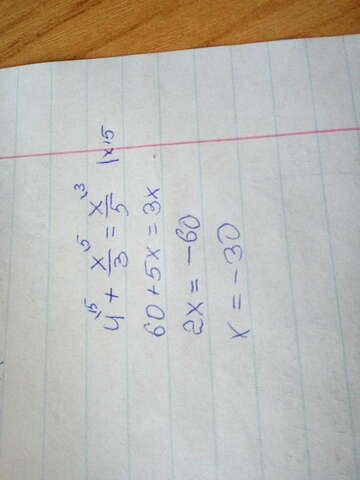 4^15 + x^5/3 = x^3/5 |x15
60+5x=3x
2x=-60
x=-30